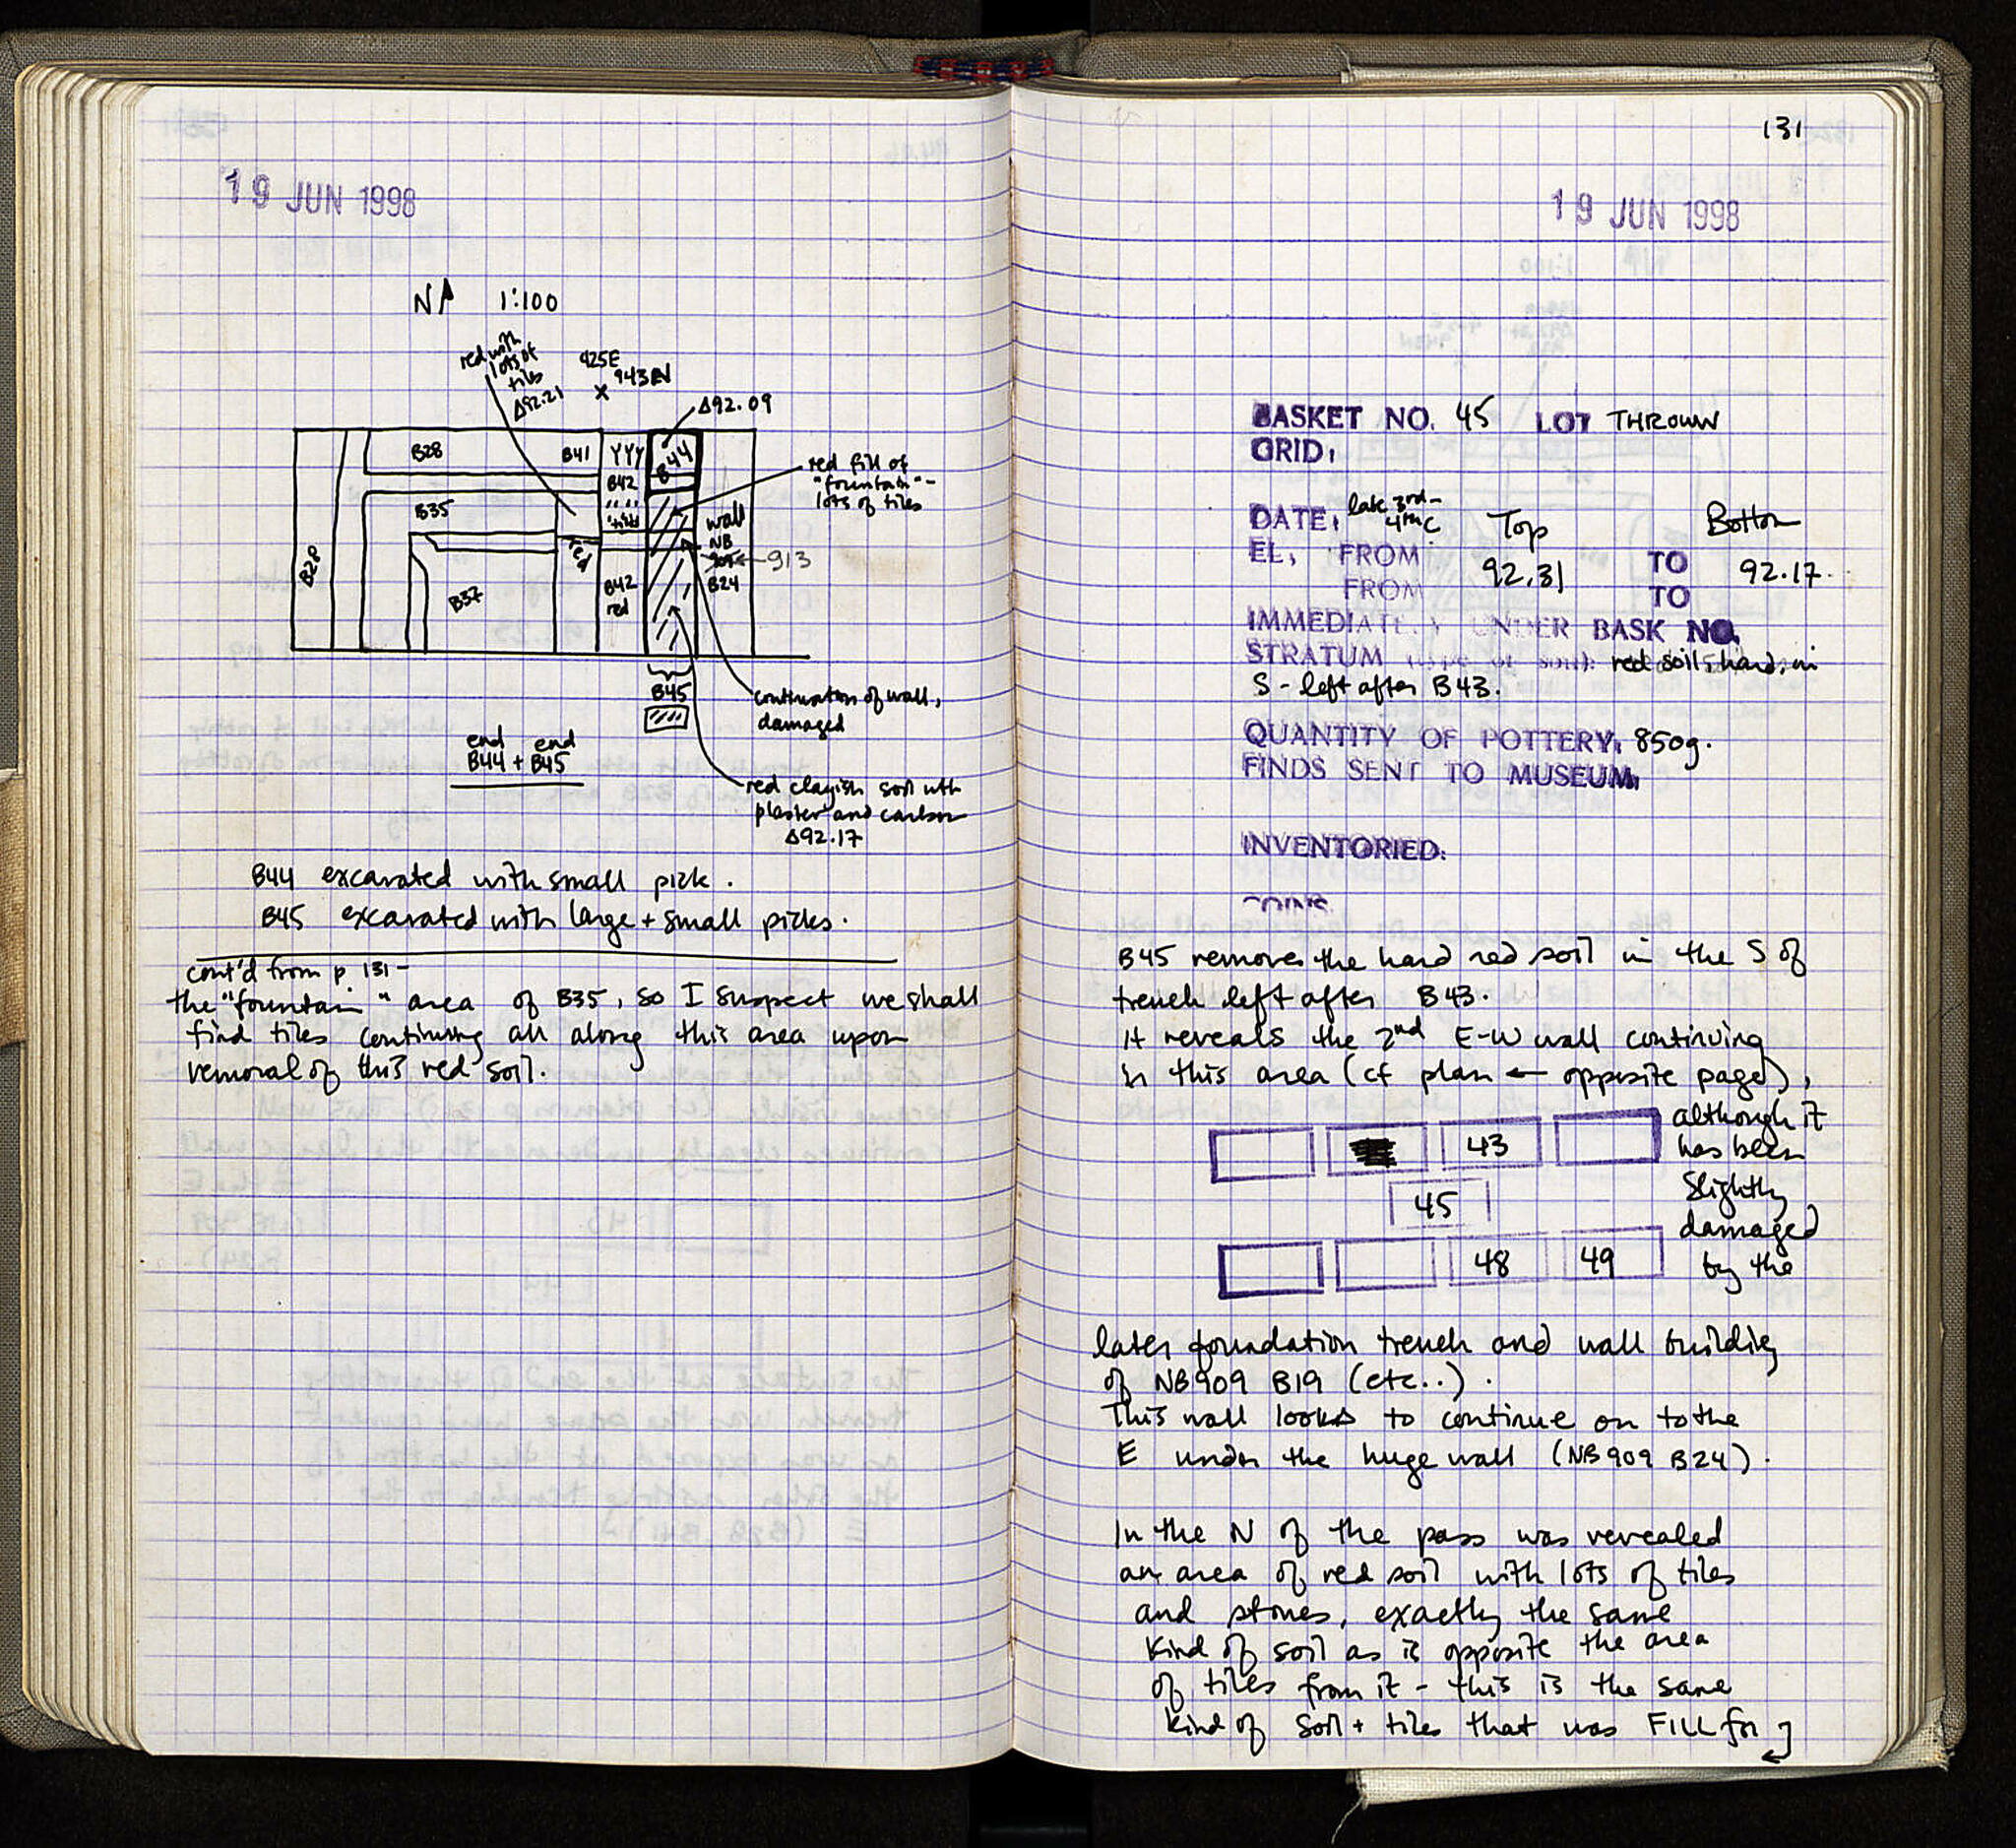 19 JUN 1998
N 1:100
red with
lots of
tiles
Δ92.21
925E
943N
Δ92.09
B28
B41
YYY
B44
B42
red fill of
"fountain" -
lots of tiles
B35
wall
NB
913
B24
B29
B37
red
B42
red
B45
continuation of wall,
damaged
end end
B44 + B45
red clayish soil with
plaster and carbon
Δ92.17
B44 excavated with small pick.
B45 excavated with large + small picks.
cont'd from p 131 -
the "fountain" area of B35, so I suspect we shall
find tiles continuing all along this area upon
removal of this red soil.
131
19 JUN 1998
BASKET NO. 45 LOT THROWN
GRID:
DATE: late 3rd-
4th C
Top Bottom
EL. FROM 92.31 TO 92.17
FROM TO
IMMEDIATELY UNDER BASK NO.
STRATUM (type of soil): red soil, hard, in
S - left after B43.
QUANTITY OF POTTERY: 850g.
FINDS SENT TO MUSEUM:
INVENTORIED:
COINS:
B45 removes the hard red soil in the S of
trench left after B43.
It reveals the 2nd E-W wall continuing
in this area (cf plan ← opposite page),
although it
has been
slightly
damaged
by the
43
45
48 49
later foundation trench and wall building
of NB909 B19 (etc..).
This wall looks to continue on to the
E under the huge wall (NB909 B24).
In the N of the pass was revealed
an area of red soil with lots of tiles
and stones, exactly the same
kind of soil as is opposite the area
of tiles from it - this is the same
kind of soil + tiles that was FILL for